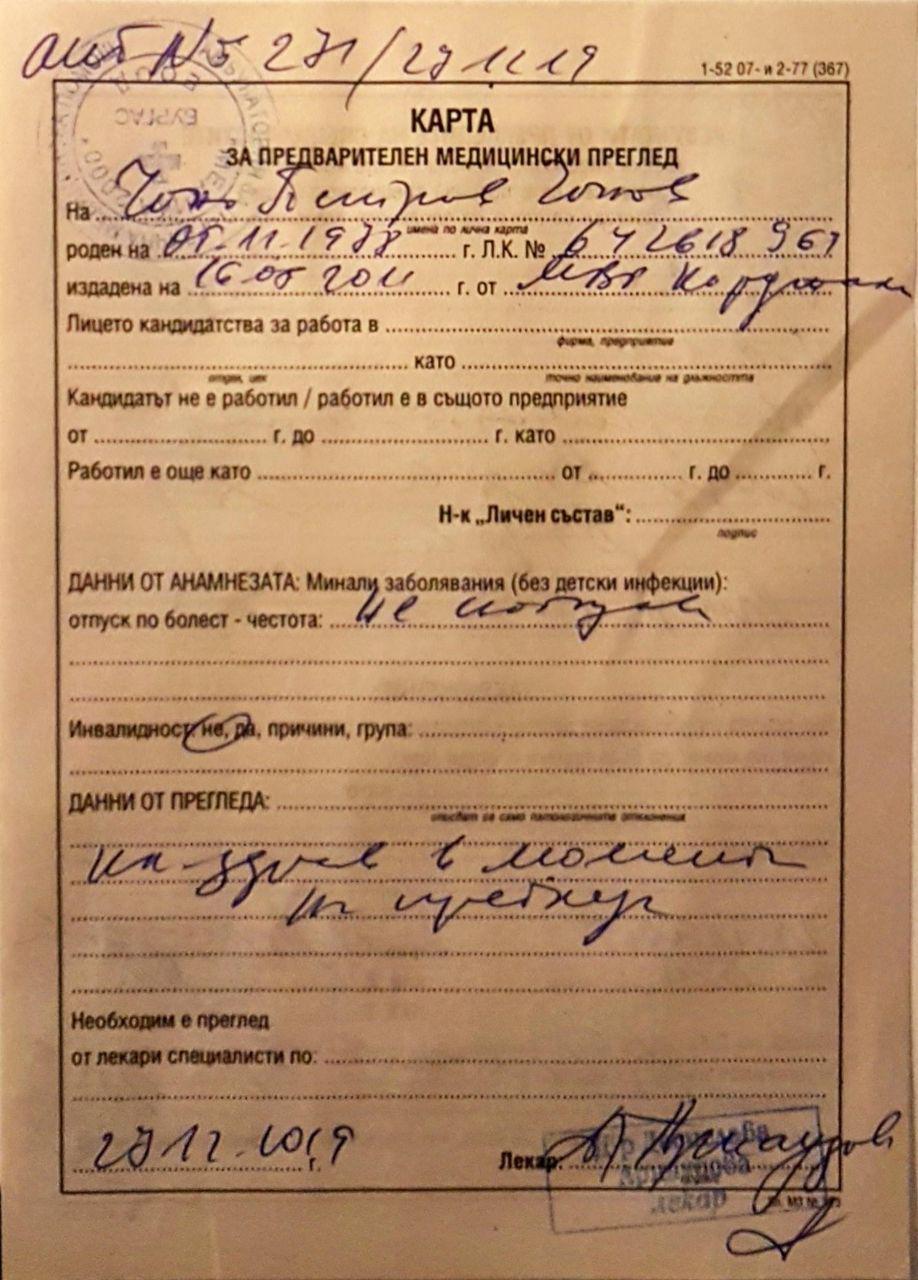 амб № 271/27 12 19
1-52 07- и 2-77 (367)
БУРГАС
КАРТА
ЗА ПРЕДВАРИТЕЛЕН МЕДИЦИНСКИ ПРЕГЛЕД
На Петров
имена по лична карта
роден на 05.11.1978 г. Л.К. №
издадена на 16 05 2011 г. от МВР Кърджали
Лицето кандидатства за работа в
фирма, предприятие
като
отдел, цех точно наименование на длъжността
Кандидатът не е работил / работил е в същото предприятие
от г. до г. като
Работил е още като от г. до г.
Н-к „Личен състав“:
подпис
ДАННИ ОТ АНАМНЕЗАТА: Минали заболявания (без детски инфекции):
отпуск по болест - честота: не
Инвалидност не, да, причини, група:
ДАННИ ОТ ПРЕГЛЕДА:
описват се само патологичните отклонения
здрав в момента
на прегледа
Необходим е преглед
от лекари специалисти по:
27 12 2019 г.
Лекар:
лекар